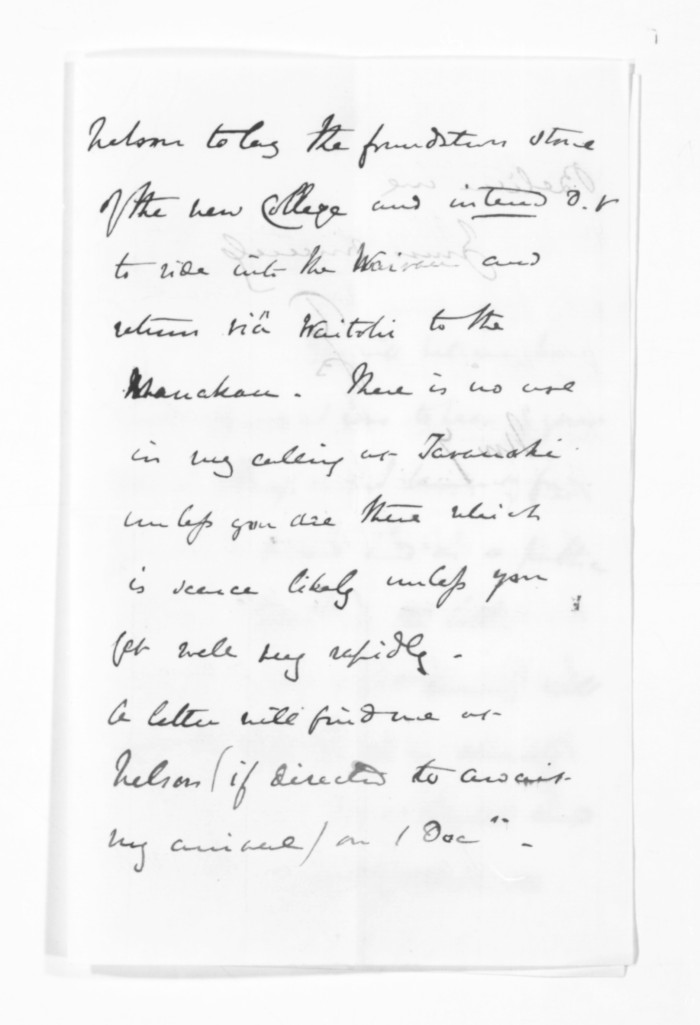 Nelson to lay the foundation stone
of the new College and intend D.V
to ride into the Wairau and
return viâ Waitohi to the
Manakau. There is no use
in my calling at Taranaki
unless you are there which
is scarce likely unless you
get well very rapidly.
A letter will find me at
Nelson (if directed to await
my arrival) on 1 Dec.